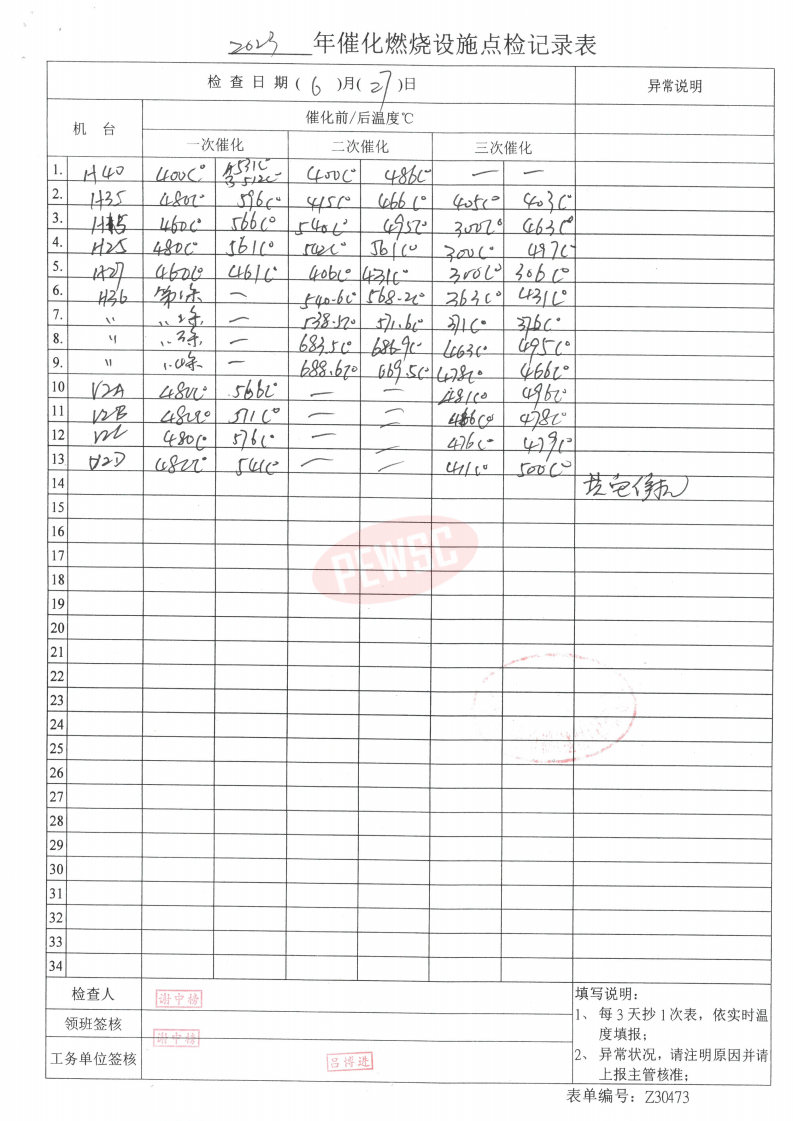 2023 年催化燃烧设施点检记录表
检查日期(6)月(27)日 异常说明
机 台 催化前/后温度℃
一次催化 二次催化 三次催化
1. H40 400C° A531C° B512C° 400C° 486C° — —
2. H35 480C° 596C° 415C° 466C° 405C° 403C°
3. 460C° 566C° 540C° 495C° 300C° 463C°
4. H25 480C° 561C° 542C° 561C° 300C° 497C°
5. H27 460C° 461C° 406C° 431C° 300C° 306C°
6. H36 — 540.6C° 568.2C° 363C° 431C°
7. 〃 — 538.5C° 571.6C° 371C° 376C°
8. 〃 — 683.5C° 686.9C° 463C° 495C°
9. 〃 — 688.6C° 669.5C° 478C° 466C°
10 V2A 480C° 566C° — — 481C° 496C°
11 V2B 482C° 571C° — — 478C°
12 V2C 480C° 576C° — — 476C° 479C°
13 V2D 482C° 541C° — — 471C° 500C°
14
15
16
17
18
19
20
21
22
23
24
25
26
27
28
29
30
31
32
33
34
PEWSC
检查人
领班签核
工务单位签核 吕博进
填写说明：
1、每3天抄1次表，依实时温
度填报；
2、异常状况，请注明原因并请
上报主管核准；
表单编号：Z30473